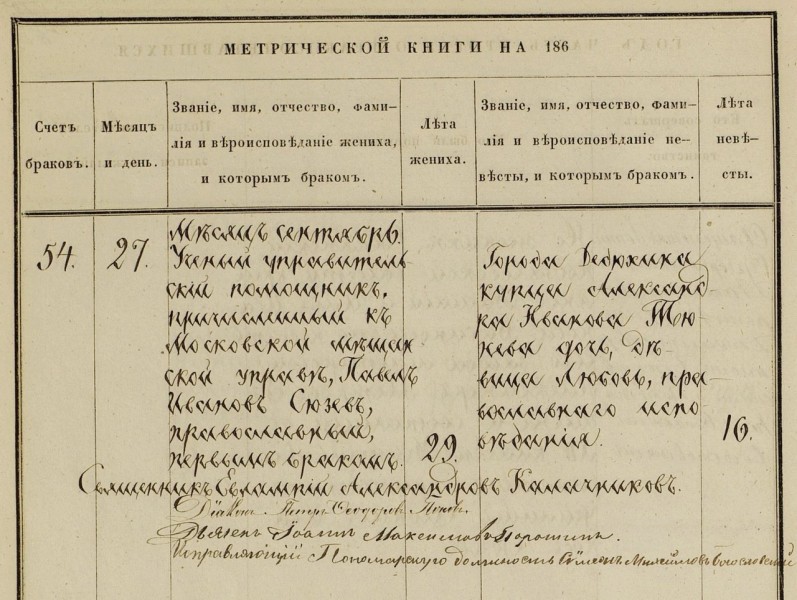 МЕТРИЧЕСКОЙ КНИГИ НА 186
Счетъ
браковъ.
Мѣсяцъ
и день.
Званіе, имя, отчество, фами-
лія и вѣроисповѣданіе жениха,
и которымъ бракомъ.
Лѣта
жениха.
Званіе, имя, отчество, фами-
лія и вѣроисповѣданіе не--
вѣсты, и которымъ бракомъ.
Лѣта
невѣ-
сты.
54.
27.
Мѣсяцъ сентябрь.
Ученый управитель-
скій помощникъ,
причисленный къ
Московской мѣщан
ской управѣ, Павелъ
Ивановъ Сюзевъ,
православный,
первымъ бракомъ.
29.
Города Дедюхина
купца Александ-
ра Иванова Тю-
нева дочь, дѣ-
вица Любовь, пра-
вославнаго испо
вѣданія.
16.
Священникъ Евлампій Александровъ Калачниковъ.
Діаконъ Петръ Ѳеодоровъ Поповъ.
Дьячекъ Іоаннъ Максимовъ Порошинъ.
Исправляющій Пономарскую должность Сѵмеонъ Михайловъ Богословскій